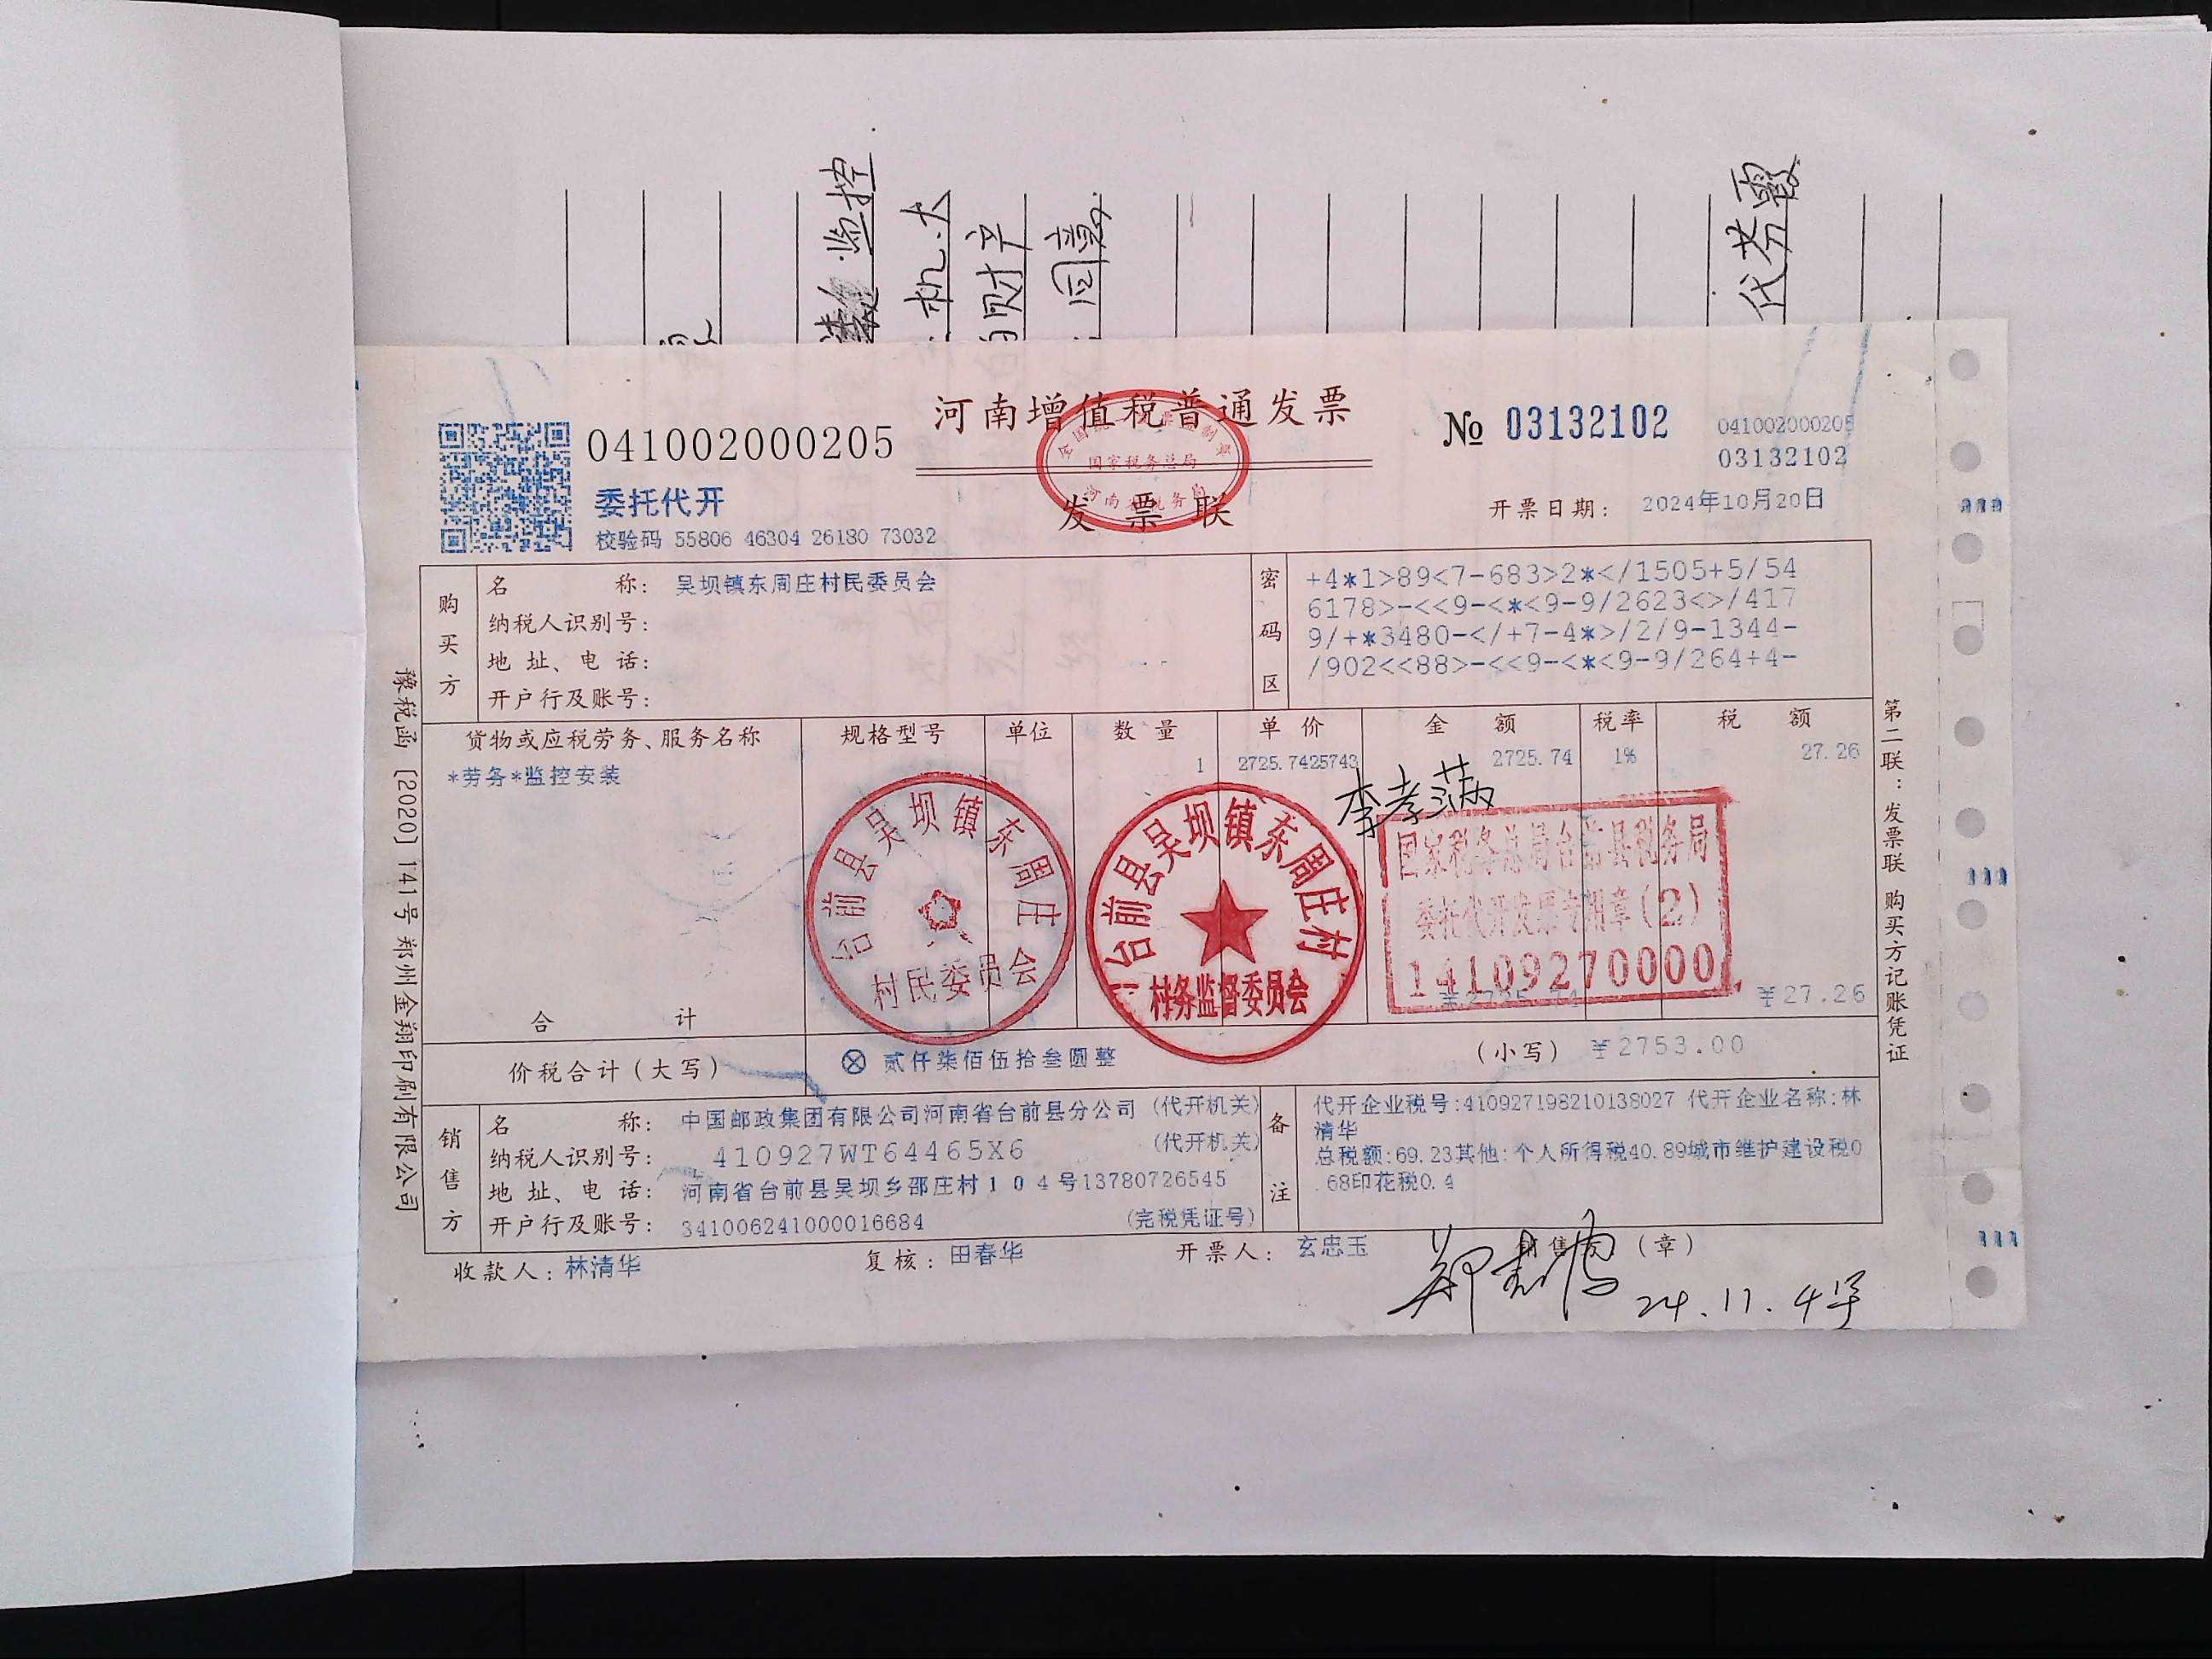 监控
机.大
财产
同意
代芬霞
河南增值税普通发票
发票联
全国统一发票监制章
国家税务总局
河南省税务局
041002000205
委托代开
校验码 55806 46304 26180 73032
№ 03132102
041002000205
03132102
开票日期: 2024年10月20日
购买方
名称: 吴坝镇东周庄村民委员会
纳税人识别号:
地址、电话:
开户行及账号:
密码区
+4*1>89<7-683>2*</1505+5/54
6178>-<<9-<*<9-9/2623<>/417
9/+*3480-</+7-4*>/2/9-1344-
/902<<88>-<<9-<*<9-9/264+4-
货物或应税劳务、服务名称 规格型号 单位 数量 单价 金额 税率 税额
*劳务*监控安装 1 2725.7425743 2725.74 1% 27.26
李孝满
台前县吴坝镇东周庄
村民委员会
台前县吴坝镇东周庄村
村务监督委员会
国家税务总局台前县税务局
委托代开发票专用章(2)
14109270000
合计 ¥2725.74 ¥27.26
价税合计(大写) ⊗ 贰仟柒佰伍拾叁圆整 (小写) ¥2753.00
销售方
名称: 中国邮政集团有限公司河南省台前县分公司 (代开机关)
纳税人识别号: 410927WT64465X6 (代开机关)
地址、电话: 河南省台前县吴坝乡邵庄村104号13780726545
开户行及账号: 341006241000016684 (完税凭证号)
备注
代开企业税号:410927198210138027 代开企业名称:林
清华
总税额:69.23其他:个人所得税40.89城市维护建设税0
.68印花税0.4
收款人: 林清华 复核: 田春华 开票人: 玄忠玉 销售方:(章)
24.11.4号
豫税函[2020]141号郑州金翔印刷有限公司
第二联:发票联 购买方记账凭证